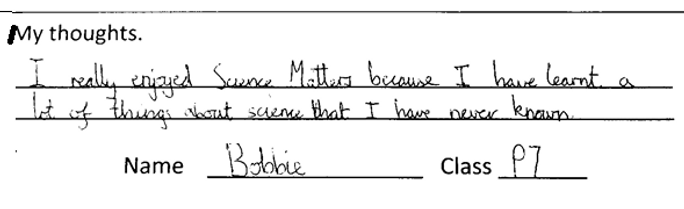 My thoughts.
I really enjoyed Science Matters because I have learnt a
lot of things about science that I have never known.
Name Bobbie Class P7